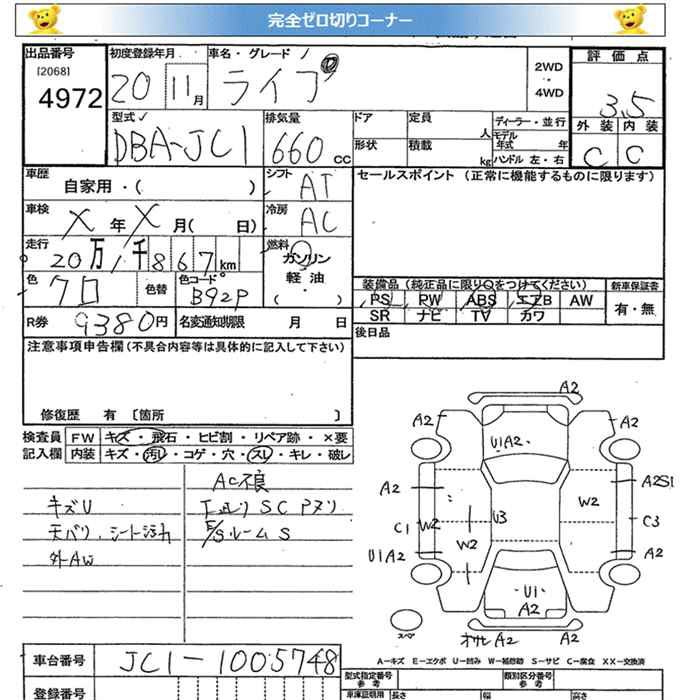 完全ゼロ切りコーナー
出品番号
[2068]
4972
初度登録年月
20 11月
車名・グレード
ライフ
2WD
4WD
評価点
3.5
外装 内装
C C
型式
DBA-JC1
排気量
660 cc
ドア
定員
人
形状
積載
kg
ディーラー・並行
モデル年式 年
ハンドル 左・右
車歴
自家用・( )
シフト
AT
セールスポイント (正常に機能するものに限ります)
車検
X年X月( 日)
冷房
AC
走行
20万1千867km
燃料
ガソリン
軽油
( )
色
クロ
色替
色コードNo
B92P
装備品 (純正品に限り○をつけてください)
新車保証書
PS PW ABS エアB AW
SR ナビ TV カワ
有・無
R券 9380円
名変通知期限 月 日
後日品
注意事項申告欄(不具合内容等は具体的に記入して下さい)
修復歴 有 [箇所 ]
検査員
記入欄
FW キズ・飛石・ヒビ割・リペア跡・×要
内装 キズ・汚レ・コゲ・穴・スレ・キレ・破レ
AC不良
キズU
天バリ、シート汚れ
外AW
A2
A2 A2
U1A2
A2
A2S1
W2
C1 W2
U3
C3
W2
U1A2
A2
U1
A2
A2
A2
スペア
A-キズ E-エクボ U-凹み W-補修跡 S-サビ C-腐食 XX-交換済
車台番号
JC1-1005748
登録番号
型式指定番号
参考
類別区分番号
参考
車庫証明用
長さ
幅
高さ